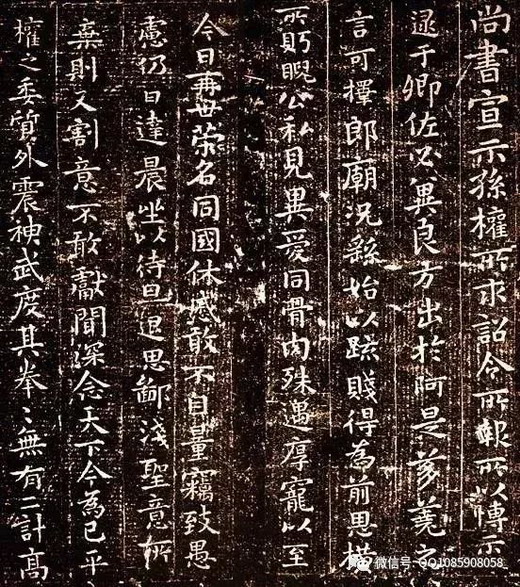 尚書宣示孫權所求詔令所報所以博示
逮于卿佐必冀良方出於阿是芻蕘之
言可擇郎廟況繇始以疏賤得為前恩橫
所眄睨公私見異愛同骨肉殊遇厚寵以至
今日再世榮名同國休慼敢不自量竊致愚
慮仍日達晨坐以待旦退思鄙淺聖意所
棄則又割意不敢獻聞深念天下今為已平
權之委質外震神武度其拳〻無有二計高
微信号: QQ1085908058